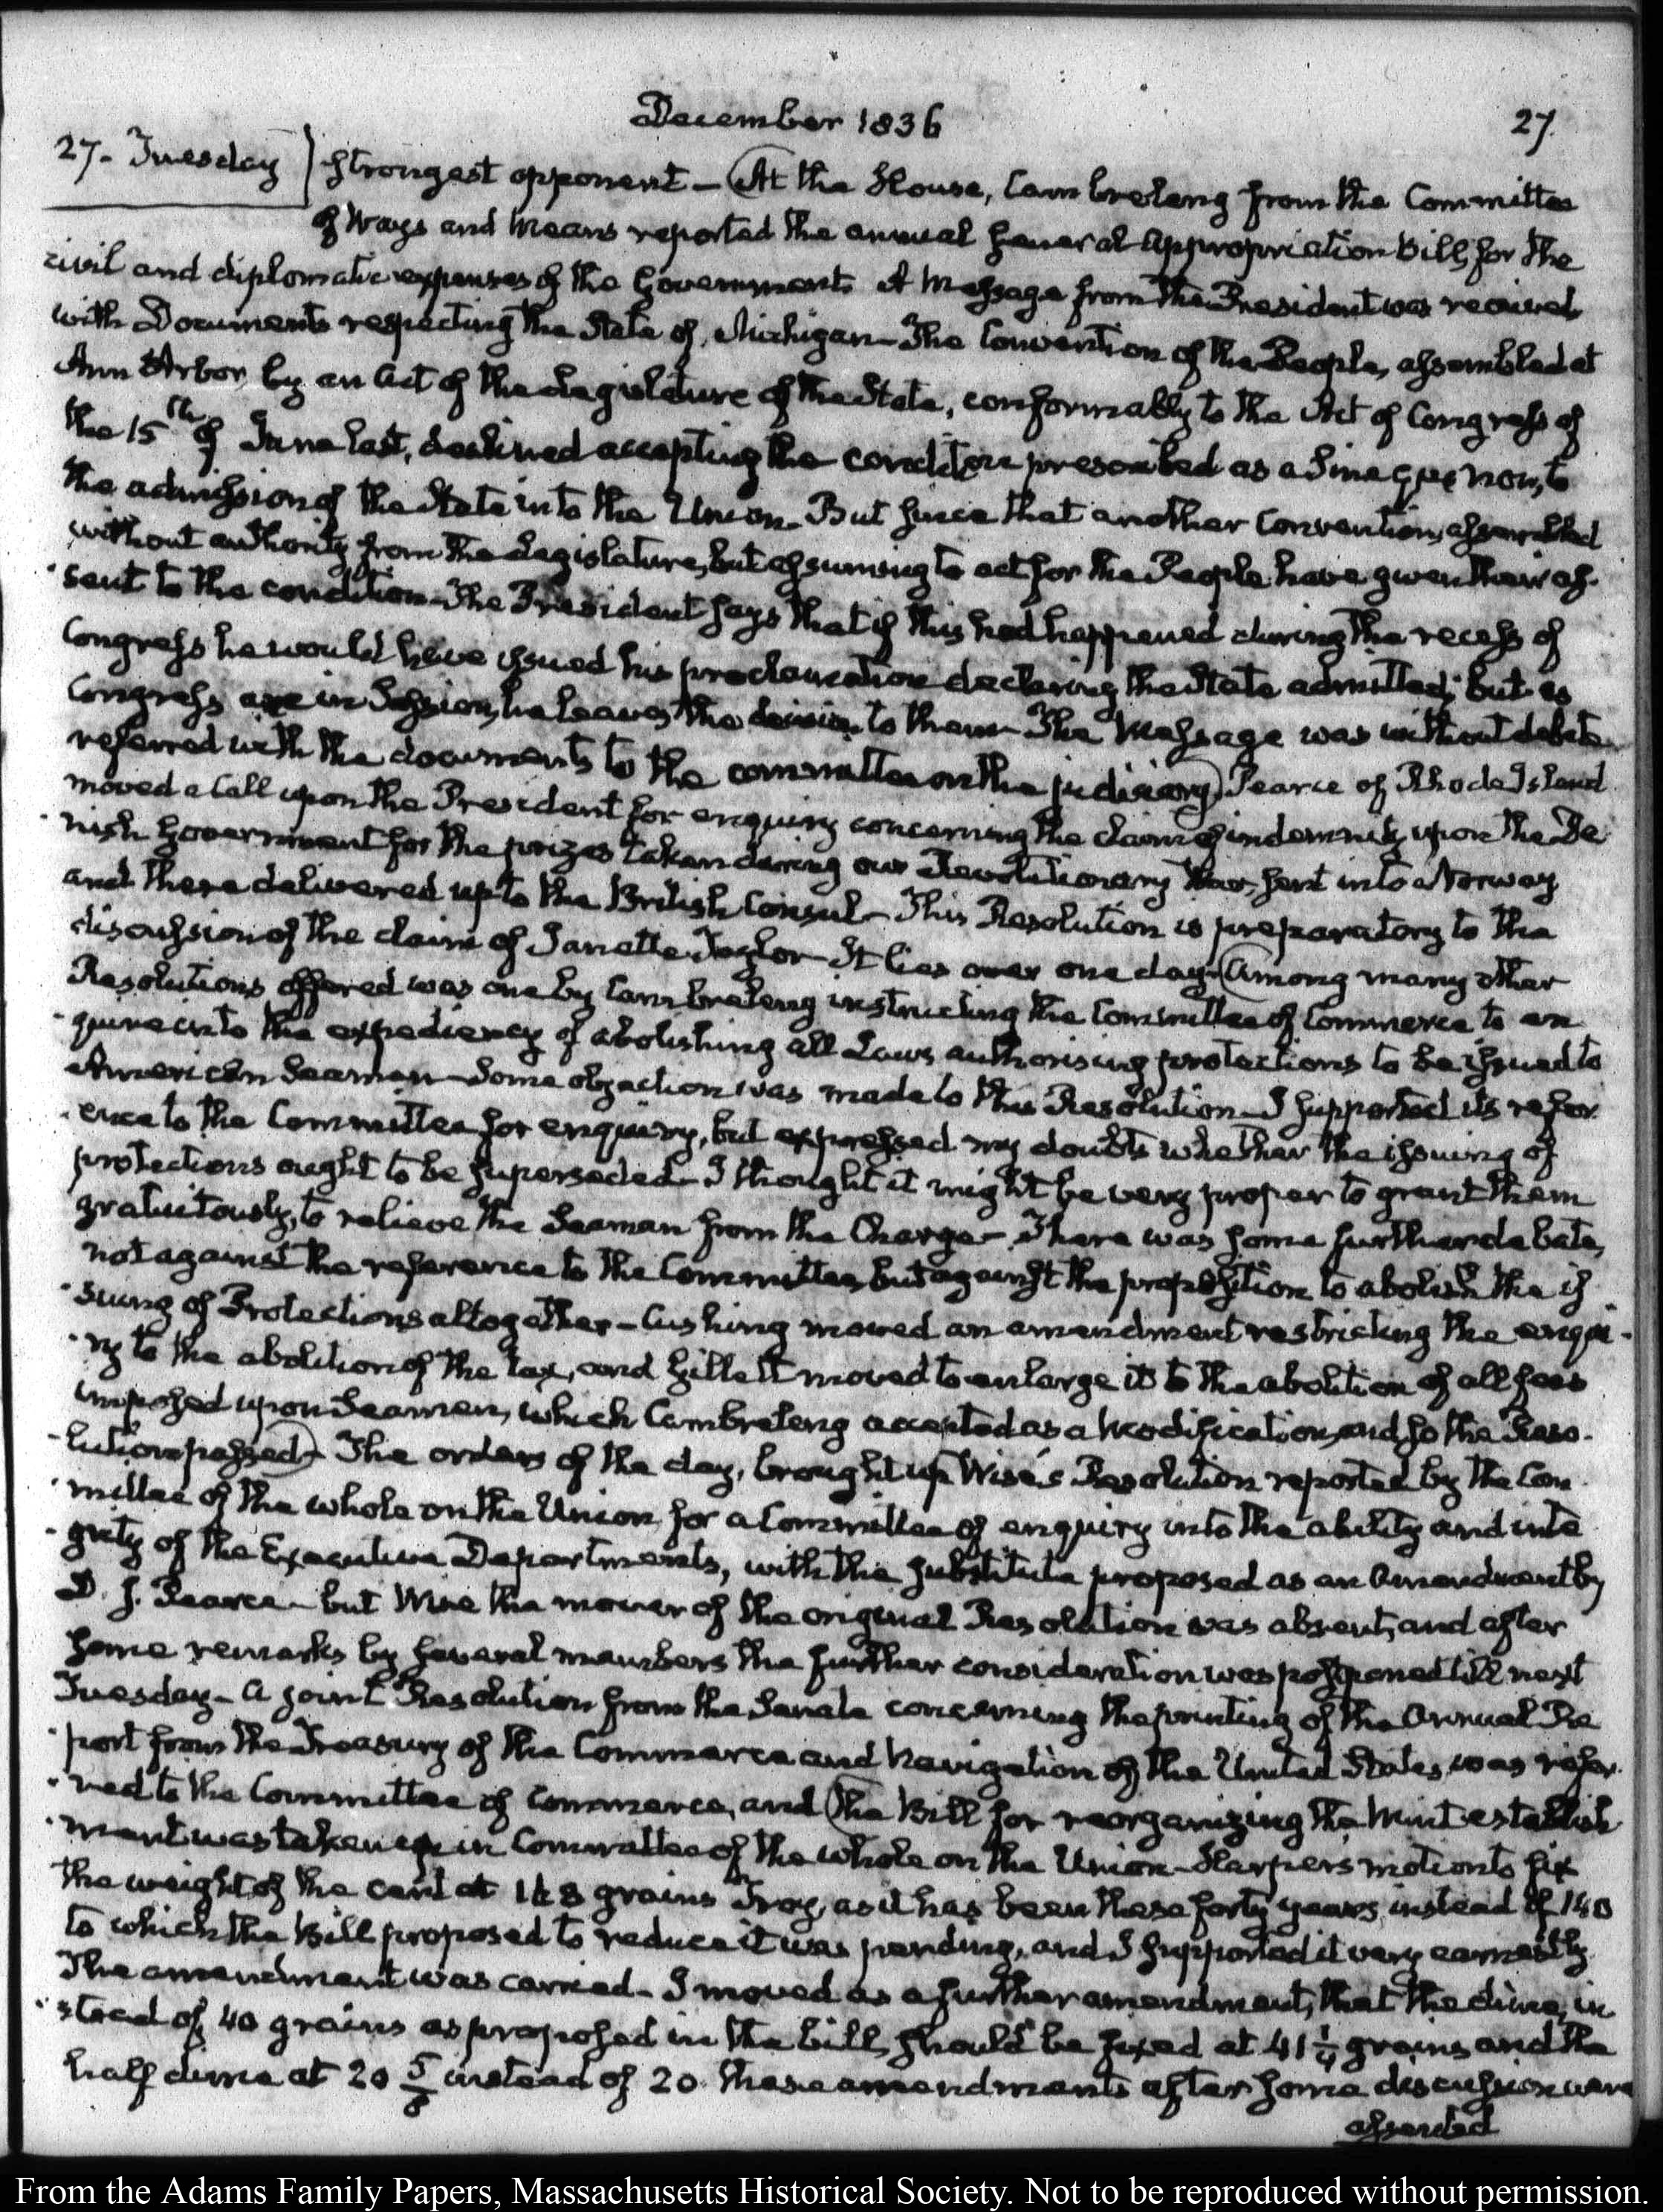 December 1836
27.
27. Tuesday
strongest opponent – At the House, Cambreleng from the Committee
of Ways and Means reported the annual general appropriation Bill, for the
civil and diplomatic expenses of the Government. A Message from the President was received
with Documents respecting the State of Michigan – The Convention of the People, assembled at
Ann Arbor, by an Act of the Legislature of the State, conformably to the Act of Congress of
the 15th of June last, declined accepting the condition prescribed as a Sine qua non, to
the admission of the State into the Union. But since that another Convention, assembled
without authority from the Legislature, but assuming to act for the People have given their as-
-sent to the condition – The President says that if this had happened during the recess of
Congress he would have issued his proclamation declaring the State admitted; but as
Congress are in Session, he leaves the decision to them – The Message was without debate
referred with the documents to the committee on the judiciary) Pearce of Rhode Island
moved a Call upon the President for enquiry concerning the claim of indemnity upon the Da
-nish Government for the prizes taken during our Revolutionary War, sent into Norway
and there delivered up to the British Consul – This Resolution is preparatory to the
discussion of the claim of Janette Taylor – It lies over one day – (Among many other
Resolutions offered was one by Cambreleng instructing the Committee of Commerce to en
-quire into the expediency of abolishing all Laws authorising protections to be issued to
American Seamen – Some objection was made to this Resolution – I supported its refer
-ence to the Committee for enquiry, but expressed my doubts whether the issuing of
protections ought to be superseded – I thought it might be very proper to grant them
gratuitously, to relieve the Seaman from the Charge – There was some further debate,
not against the reference to the Committee, but against the proposition to abolish the is
-suing of Protections altogether – Cushing moved an amendment restricting the enqui-
-ry to the abolition of the tax, and Gillett moved to enlarge it to the abolition of all fees
imposed upon Seamen, which Cambreleng accepted as a modification, and so the Reso-
-lution passed) – The orders of the day, brought up Wise's Resolution reported by the Com
-mittee of the whole on the Union for a Committee of enquiry into the ability and inte
-grity of the Executive Departments, with the substitute proposed as an Amendment by
D. J. Pearce – but Wise the mover of the original Resolution was absent, and after
some remarks by several members the further consideration was postponed till next
Tuesday – A joint Resolution from the Senate concerning the printing of the Annual Re
-port from the Treasury of the Commerce and Navigation of the United States, was refer-
-red to the Committee of Commerce, and (the Bill for reorganizing the Mint establish
-ment was taken up in Committee of the whole on the Union – Harpers motion to fix
the weight of the cent at 168 grains Troy, as it has been these forty years, instead of 140
to which the Bill proposed to reduce it was pending, and I supported it very earnestly.
The amendment was carried – I moved as a further amendment, that the dime, in
-stead of 40 grains as proposed in the bill, should be fixed at 41 1/4 grains and the
half dime at 20 5/8 instead of 20. These amendments after some discussion were
assented
From the Adams Family Papers, Massachusetts Historical Society. Not to be reproduced without permission.